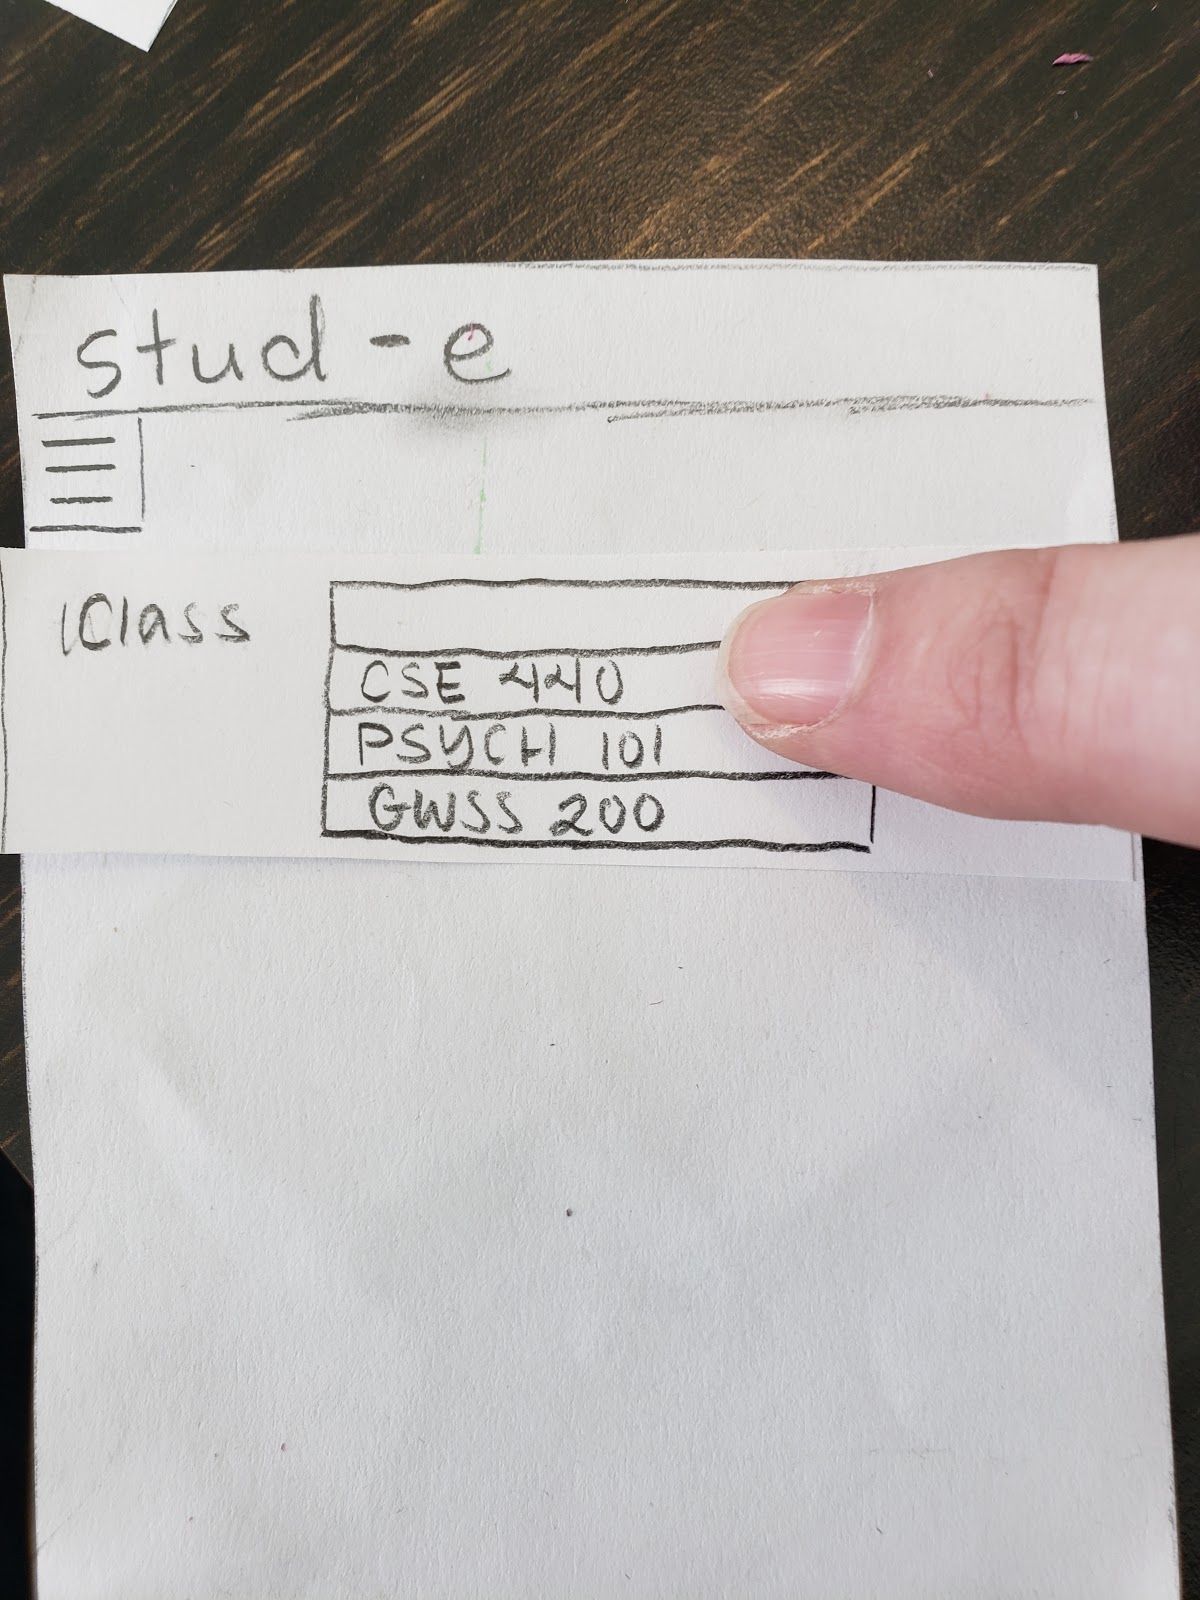 stud-e
Class
CSE 440
PSYCH 101
GWSS 200